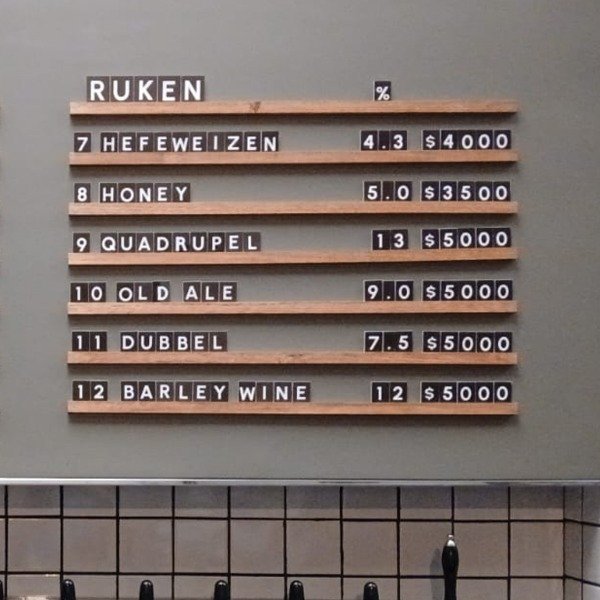 RUKEN %
7 HEFEWEIZEN 4.3 $4000
8 HONEY 5.0 $3500
9 QUADRUPEL 13 $5000
10 OLD ALE 9.0 $5000
11 DUBBEL 7.5 $5000
12 BARLEY WINE 12 $5000